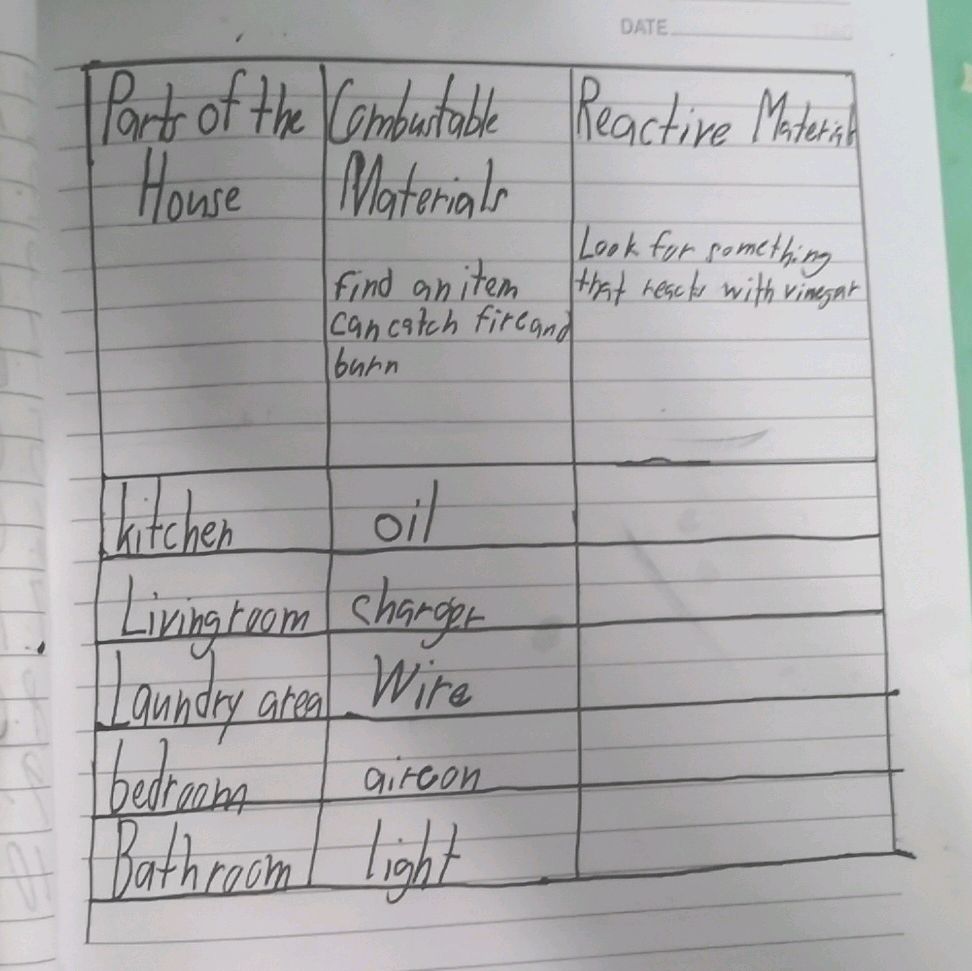 DATE
Parts of the
House
Combustable
Materials
find an item
can catch fire and
burn
Reactive Material
Look for something
that reacts with vinegar
kitchen
oil
Living room
charger
Laundry area
Wire
bedroom
aircon
Bathroom
light